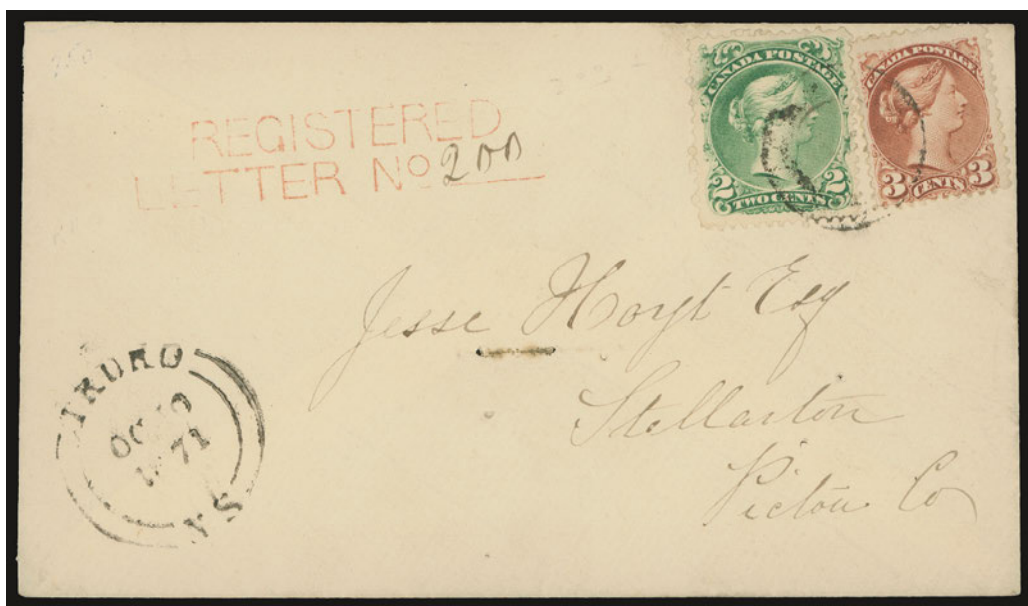 REGISTERED
LETTER No 200
CANADA POSTAGE
2 2
TWO CENTS
CANADA POSTAGE
3 CENTS 3
Jesse Hoyt Esq
Stellarton
Pictou Co
TRURO
OC 10
1871
N.S